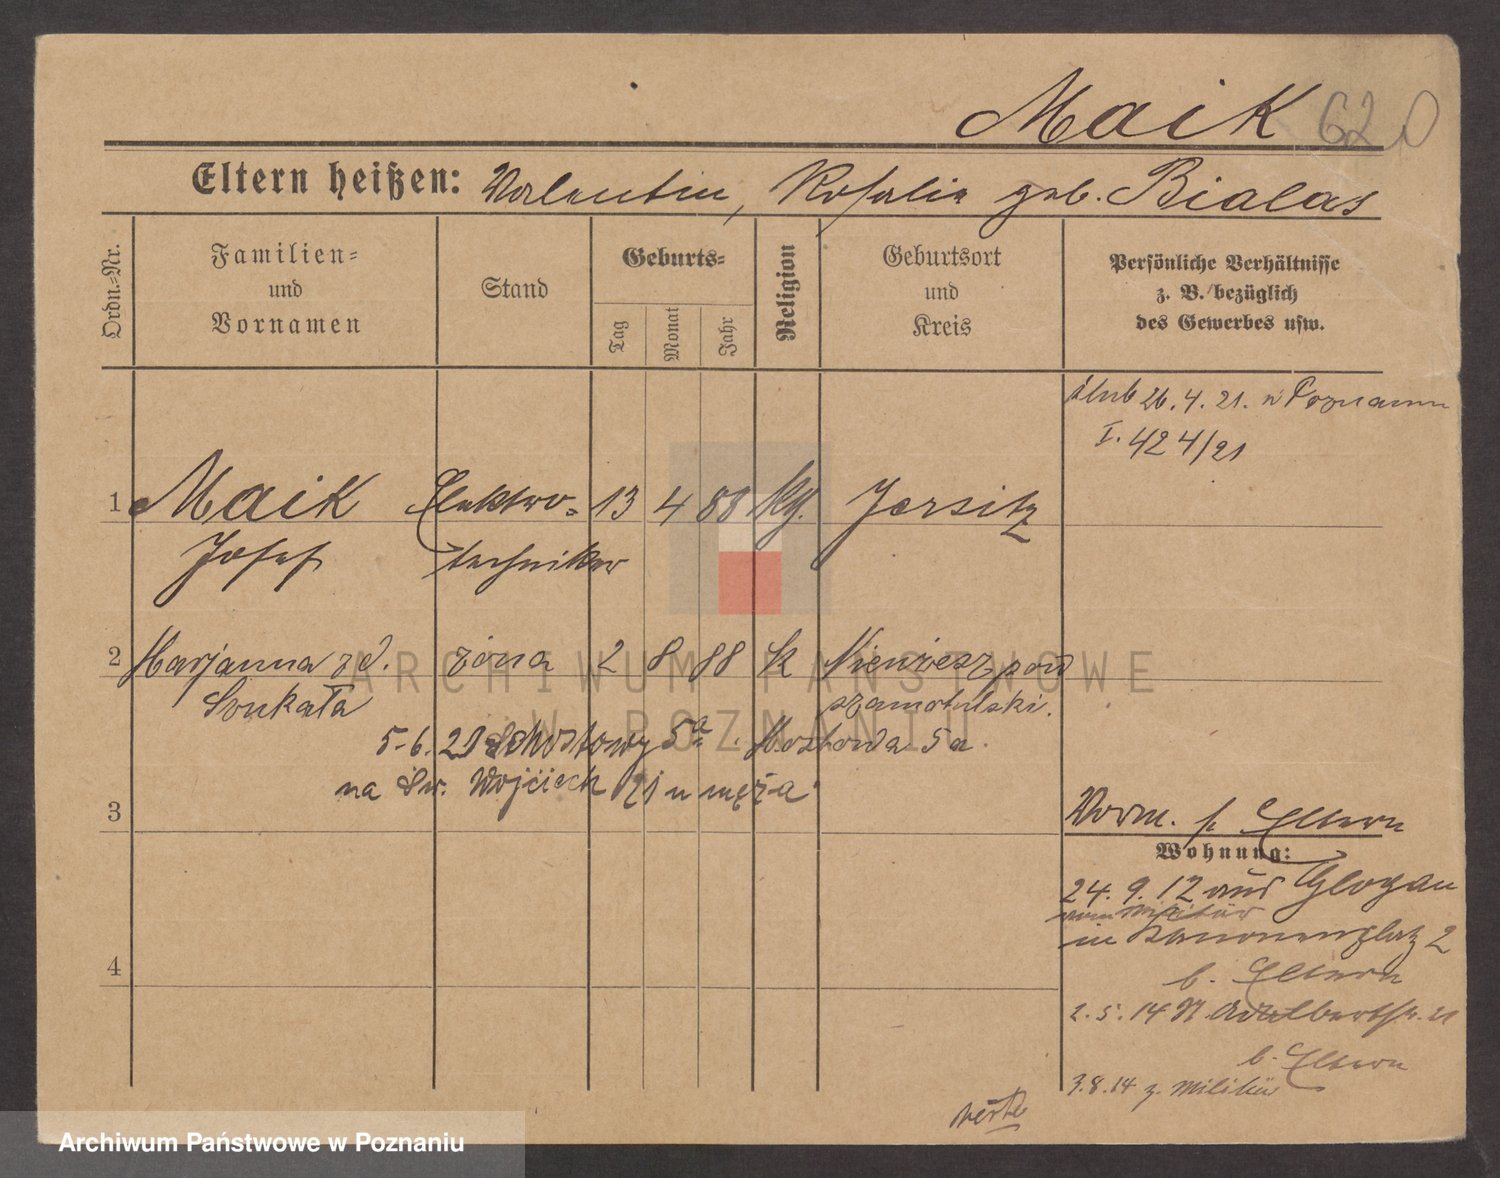 Maik 620
Eltern heißen: Valentin, Rosalie geb. Bialas
Ordn.-Nr.
Familien-
und
Vornamen
Stand
Geburts-
Tag
Monat
Jahr
Religion
Geburtsort
und
Kreis
Persönliche Verhältnisse
z. B. bezüglich
des Gewerbes usw.
ślub 26.4.21. w Poznaniu
I. 424/21
1 Maik Elektro- 13 4 88 kg. Jersitz
Josef techniker
2 Marjanna zd. żona 2 8 88 k pow
szamotulski.
5.6. 5a Mostowa 5a
na Św. Wojciech 21 u męża
3
Vorm. b. Eltern
Wohnung:
24.9.12 aus Glogau
vom Militär
in Kanonenplatz 2
b. Eltern
2.5.14 St. Adalbertstr. 21
b. Eltern
3.8.14 z. Militär
4
ARCHIWUM PAŃSTWOWE
W POZNANIU
Archiwum Państwowe w Poznaniu